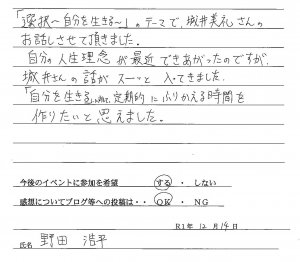 「選択～自分を生きる～」のテーマで、城井美礼さんの
お話しさせて頂きました。
自分の人生理念が最近できあがったのですが、
城井さんの話がスーっと入ってきました。
「自分を生きる」定期的にふりかえる時間を
作りたいと思えました。
今後のイベントに参加を希望 する ・ しない
感想についてブログ等への投稿は・・ OK ・ NG
R1年 12月 14日
氏名 野田 浩平